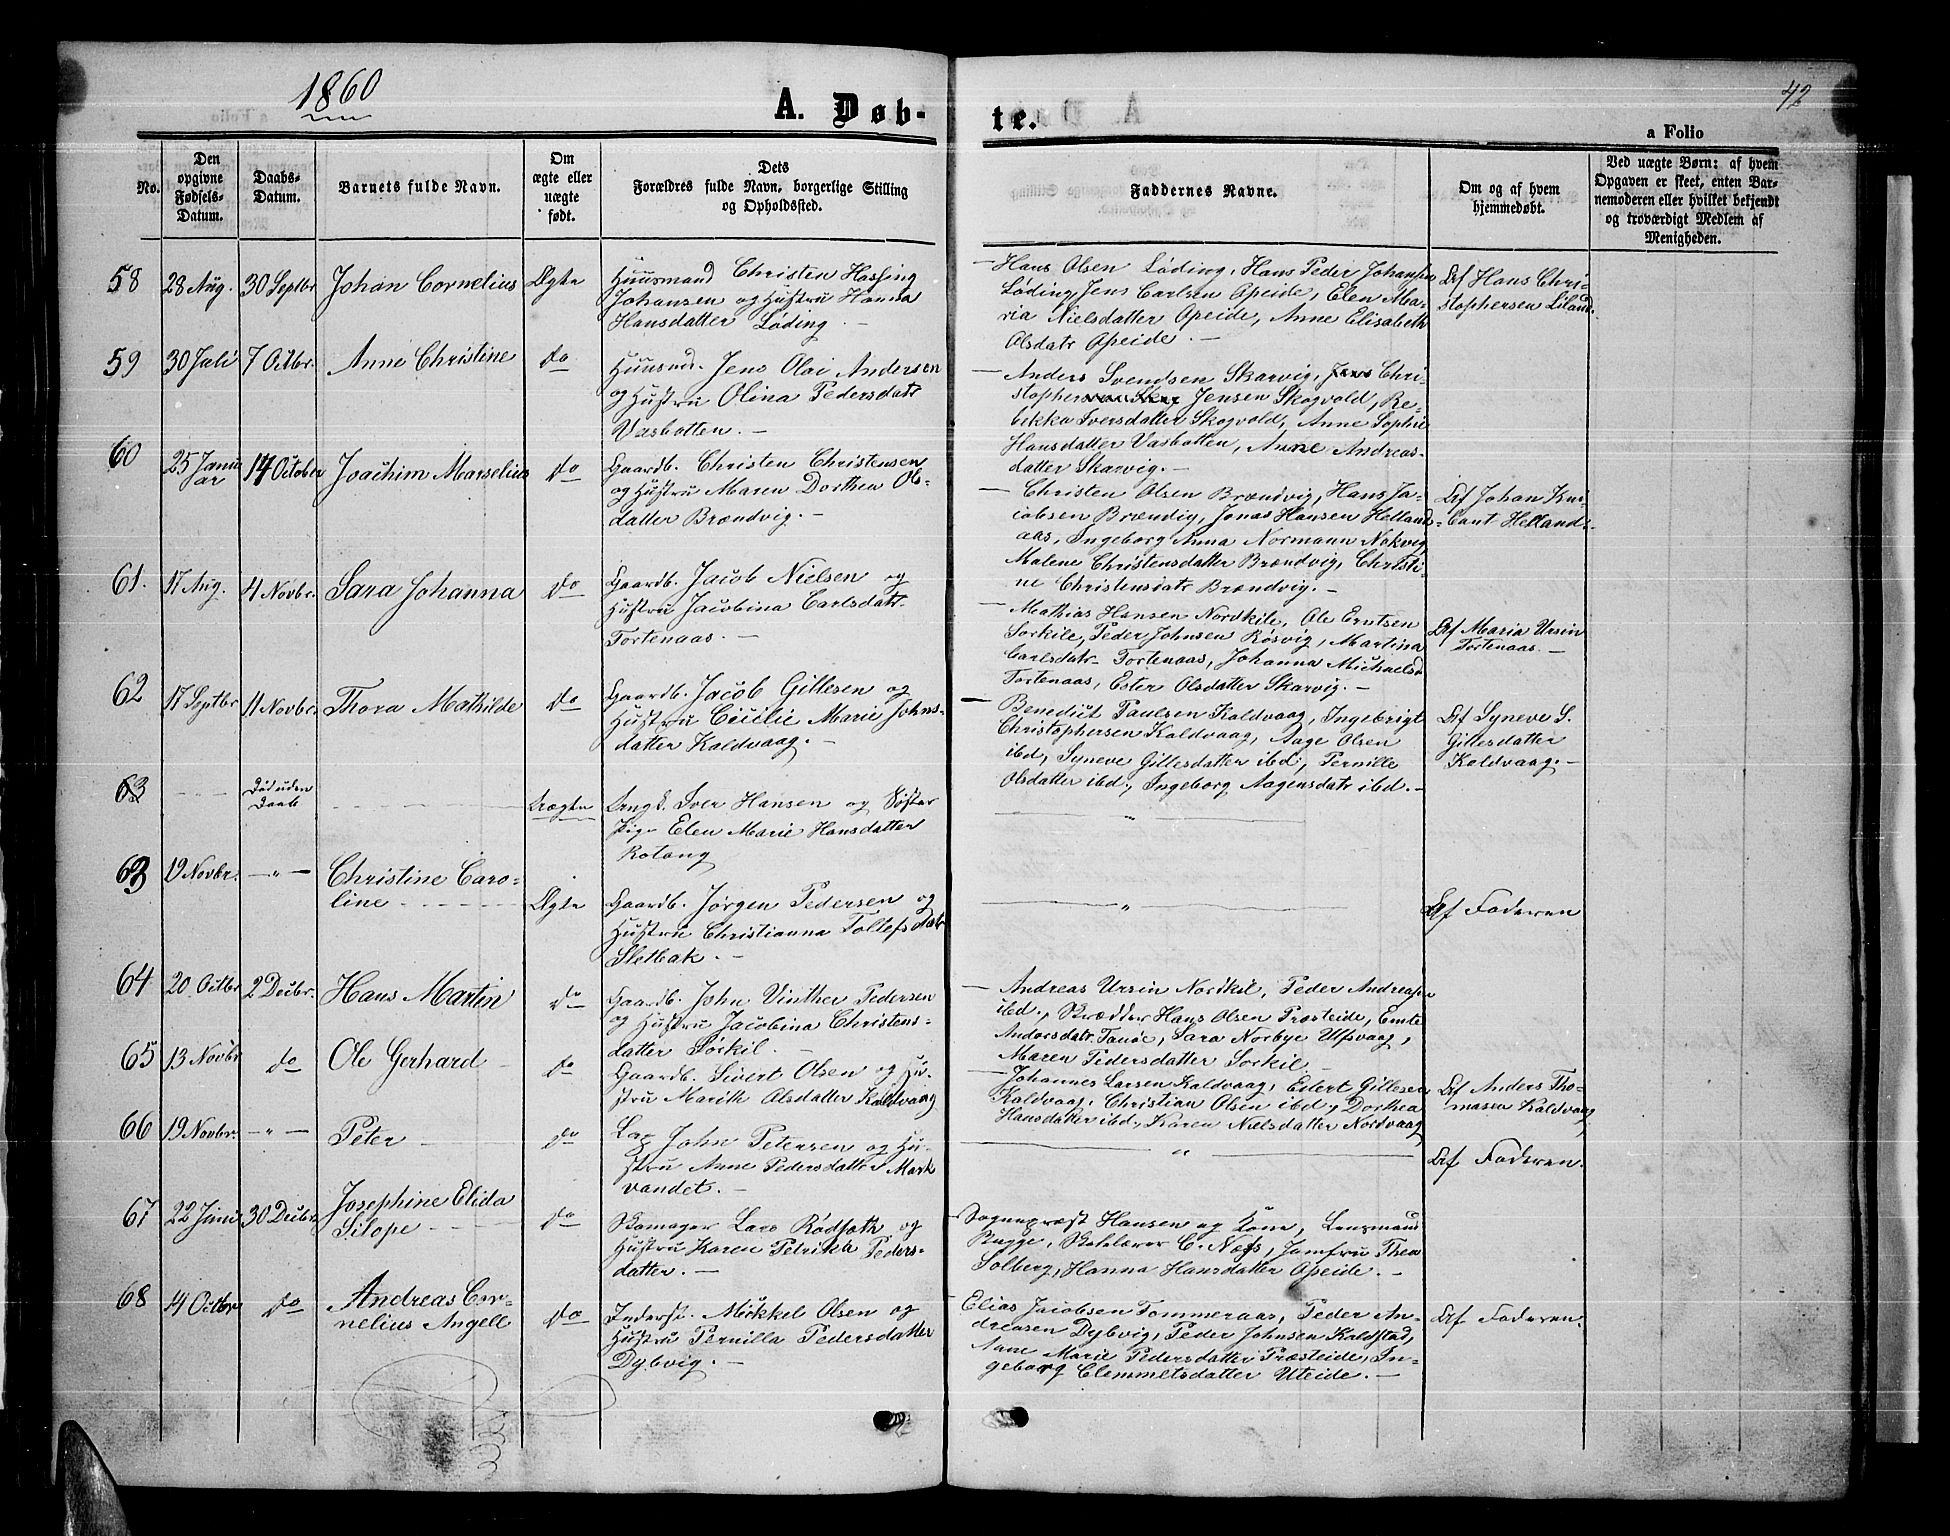 1860
42
A. Døb-
te.
a Folio
No.
Den
opgivne
Fødsels-
Datum.
Daabs-
Datum.
Barnets fulde Navn.
Om
ægte eller
uægte
født.
Dets
Forældres fulde Navn, borgerlige Stilling
og Opholdssted.
Faddernes Navne.
Om og af hvem
hjemmedøbt.
Ved uægte Børn: af hvem
Opgaven er skeet, enten Bar-
nemoderen eller hvilket bekjendt
og troværdigt Medlem af
Menigheden.
58 28 Aug. 30 Septbr. Johan Cornelius Ægte
Huusmand Christen Hassing
Johansen og Hustru Hanna
Hansdatter Løding —
— Hans Olsen Løding, Hans Peder Johansen
Løding, Jens Carlsen Opeide, Elen Ma-
ria Nielsdatter Opeide, Anne Elisabeth
Olsdatr Opeide. —
Af Hans Chri-
stophersen Liland.
59 30 Juli 7 Octbr. Anne Christine do
Huusmd. Jens Olai Andersen
og Hustru Olina Pedersdatr
Vasbotten. —
— Anders Svendsen Skarvig, Jens Chri-
stophersen Jensen Skogvold, Re-
bekka Iversdatter Skogvold, Anne Sophie
Hansdatter Vasbotten, Anne Andreas-
datter Skarvig. —
60 25 Janu
ar 14 October Joachim Marselius do
Gaardb. Christen Christensen
og Hustru Maren Dorthea Ol-
datter Brændvig. —
— Christen Olsen Brændvig, Hans Ja-
cobsen Brændig, Jonas Hansen Helland-
aas, Ingeborg Anna Normann Nokvig
Malene Christensdatter Brændvig, Christi-
ne Christensdatr Brændvig. —
Af Johan Kni-
Cant Hellands
61. 17 Aug. 4 Novbr. Sara Johanna do
Gaardb. Jacob Nielsen og
Hustru Jacobina Carlsdatr
Tortenaas. —
— Mathias Hansen Nordkile, Ole Erntsen
Sorkile, Peder Johnsen Røsvig, Martina
Carlsdatr Tortenaas, Johanna Michaelsd
Tortenaas, Ester Olsdatter Skarvig. —
Af Maria Ursin
Tortenaas. —
62 17 Septbr. 11 Novbr. Thora Mathilde do
Gaardb. Jacob Gillesen og
Hustru Cicilie Marie Johns-
datter Kaldvaag. —
— Benedict Paulsen Kaldvaag, Ingebrigt
Christophersen Kaldvaag, Aage Olsen
ibd, Syneve Gillesdatter ibd, Pernille
Olsdatter ibd., Ingeborg Aagensdatr ibd. —
Af Syneve S.
Gillesdatter
Kaldvaag. —
63 Død uden
Daab Uægte
Ungk. Iver Hansen og Søster
Pige Elen Marie Hansdatter
Rotang
"
63 19 Novbr. — " — Christine Caro-
line Ægte
Gaardb. Jørgen Pedersen og
Hustru Christianna Tollefsdatr
Sletbak. —
"
Af Faderen
64 20 Octbr. 2 Decbr. Hans Martin do
Gaardb. John Vinther Pedersen
og Hustru Jacobina Christens-
datter Sørkil. —
— Andreas Ursin Nordkil, Peder Andreasen
ibd., Skrædder Hans Olsen Præsteide, Emte
Andersdatr Tanøe, Sara Norbye Ulfsvaag,
Maren Pedersdatter Sorkil. —
65 13 Novbr. do Ole Gerhard do
Gaardb. Sivert Olsen og Hu-
stru Marith Olsdatter Kaldvaag
— Johannes Larsen Kaldvaag, Edert Gillesen
Kaldvaag, Christian Olsen ibd, Dorthea
Hansdatter ibd., Karen Nielsdatter Nordvaag
Af Anders Tho-
masen Kaldvaag
66 19 Novbr. — " — Peter do
Lap John Petersen og Hu-
stru Anne Pedersdatter Mark
vandet. —
"
Af Faderen.
67 22 Juni 30 Decbr. Josephine Elida
Silope do
Skomager Lars Rødsath og
Hustru Karen Petrikka Peders-
datter. —
Sognepræst Hansen og Kone, Lensmand
Bugge, Skolelærer C. Næss, Jomfru Thea
Solberg, Hanna Hansdatter Opeide. —
68 14 Octbr. do Andreas Cor-
nelius Angell do
Inderst. Mikkel Olsen og
Hustru Pernilla Pedersdatter
Dybvig. —
Elias Jacobsen Tommeraas, Peder An-
dreasen Dybvig, Peder Johnsen Kaldstad,
Anne Marie Pedersdatter Præsteide, In-
geborg Clemmetsdatter Uteide. —
Af Faderen.